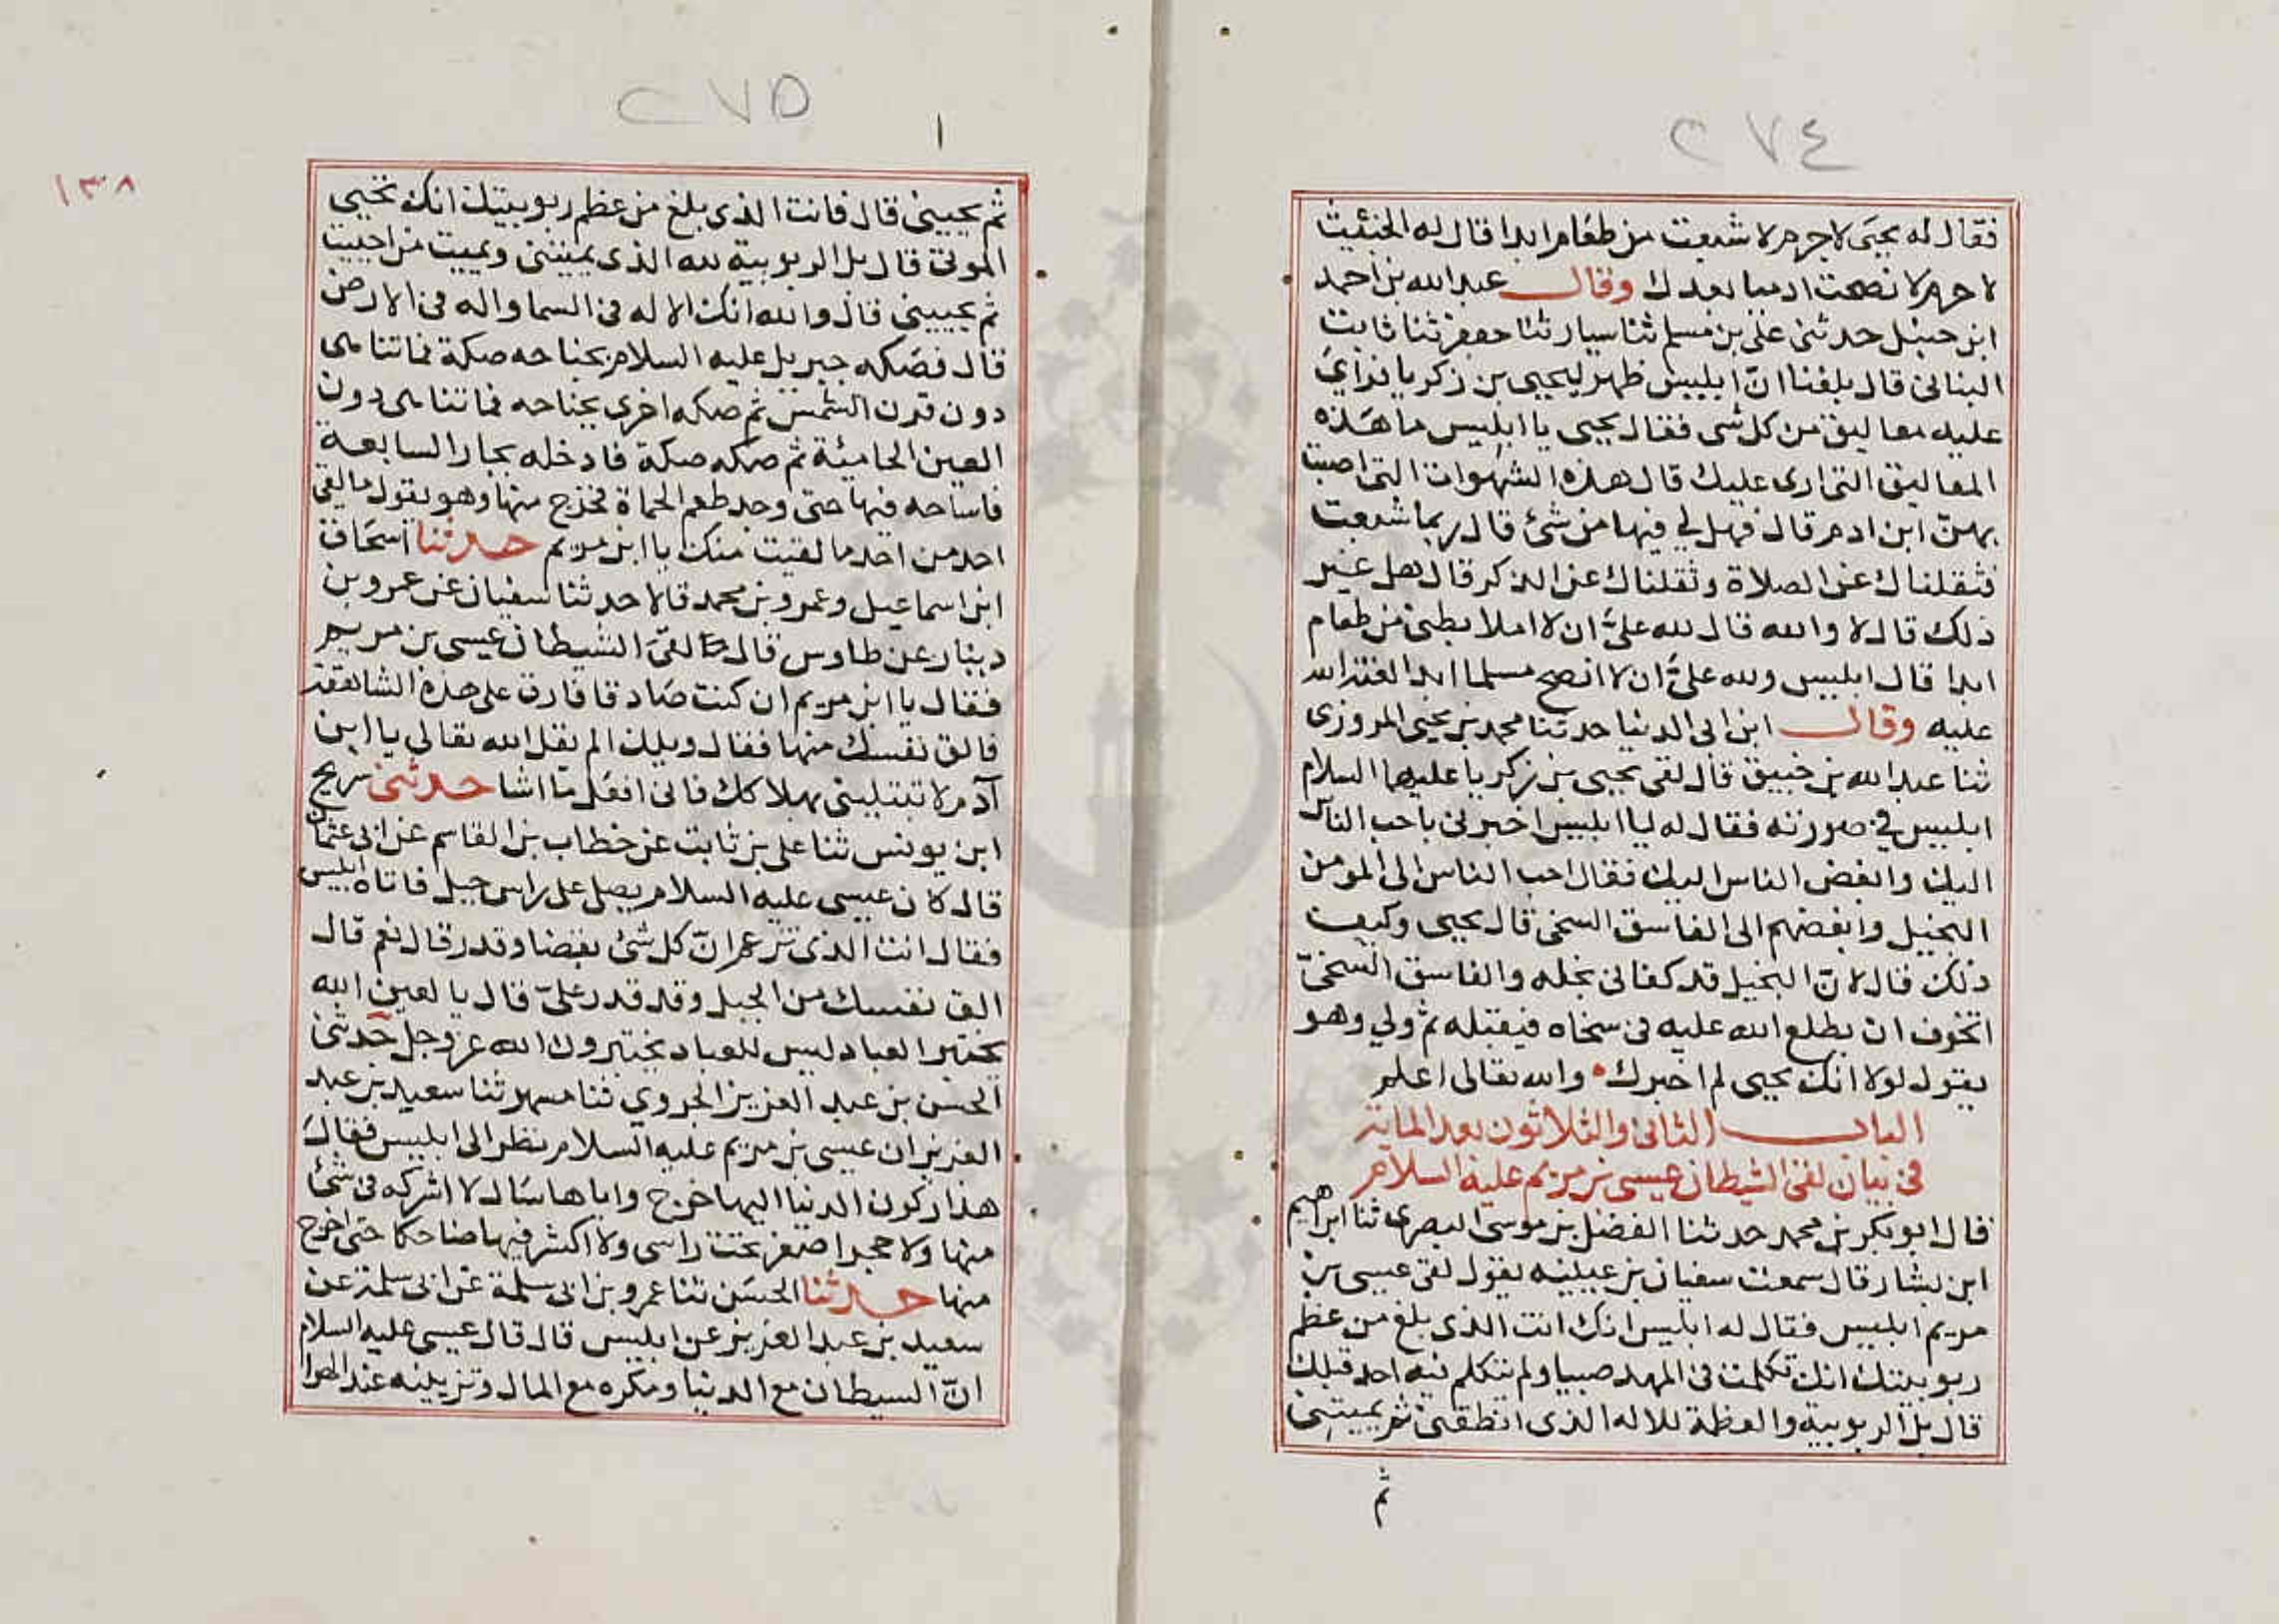 ٢٧٤
فقال له يحيى لا جرم لا شبعت من طعام ابدا قال له الخبيث
لا جرم لا نصحت ادميا بعدك وقال عبد الله بن احمد
ابن حنبل حدثنى على بن مسلم ثنا سيار ثنا جعفر ثنا ثابت
البنانى قال بلغنا انّ ابليس ظهر ليحيى بن زكريا فراى
عليه معاليق من كل شى فقال يحيى يا ابليس ما هذه
المعاليق التى ارى عليك قال هذه الشهوات التى اصيب
بهنّ ابن ادم قال فهل لي فيها من شئ قال ربما شبعت
فثقلناك عن الصلاة وثقلناك عن الذكر قال هل غير
ذلك قال لا والله قال لله عليّ ان لا املا بطنى من طعام
ابدا قال ابليس ولله عليّ ان لا انصح مسلما ابدا لعنة الله
عليه وقال ابن ابى الدنيا حدثنا محمد بن يحيى المروزى
ثنا عبد الله بن خبيق قال لقى يحيى بن زكريا عليهما السلام
ابليس في صورته فقال له يا ابليس اخبرنى باحب الناس
اليك وابغض الناس اليك فقال احب الناس الى المومن
البخيل وابغضهم الى الفاسق السخى قال يحيى وكيف
ذلك قال لانّ البخيل قد كفانى بخله والفاسق السخىّ
اتخوف ان يطلع الله عليه فى سخاه فيقبله ثم ولي وهو
يقول لولا انك يحيى لم اخبرك والله تعالى اعلم
الباب الثانى والثلاثون بعد الماية
فى بيان لقى الشيطان عيسى بن مريم عليه السلام
قال ابو بكر بن محمد حدثنا الفضل بن موسى البصرى ثنا ابراهيم
ابن بشار قال سمعت سفيان بن عيينه يقول لقى عيسى بن
مريم ابليس فقال له ابليس انك انت الذى بلغ من عظم
ربوبيتك انك تكلمت فى المهد صبيا ولم يتكلم فيه احد قبلك
قال بل الربوبية والعظمة للاله الذى انطقنى ثم يميتنى
ثم
٢٧٥
١
١٣٨
ثم يحيينى قال فانت الذى بلغ من عظم ربوبيتك انك تحيى
الموتى قال بل الربوبية لله الذى يميتنى ويميت من احييت
ثم يحيينى قال والله انك الاله فى السما واله فى الارض
قال فصكه جبريل عليه السلام بجناحه صكة فما تناهى
دون قرن الشمس ثم صكه اخرى بجناحه فما تناهى دون
العين الحامئة ثم صكه صكة فادخله بحار السابعة
فاساحه فيها حتى وجد طعم الحماة فخرج منها وهو يقول ما لقى
احد من احد ما لقيت منك يا ابن مريم حدثنا اسحاق
ابن اسماعيل وعمرو بن محمد قالا حدثنا سفيان عن عمرو بن
دينار عن طاوس قال لقى الشيطان عيسى بن مريم
فقال يا ابن مريم ان كنت صادقا فارق على هذه الشاهقة
فالق نفسك منها فقال ويلك الم يقل الله تعالى يا ابن
آدم لا تبتلينى بهلاكك فانى افعل ما اشا حدثنى سريج
ابن يونس ثنا على بن ثابت عن خطاب بن القاسم عن ابى عثمان
قال كان عيسى عليه السلام يصلى على راس جبل فاتاه ابليس
فقال انت الذى تزعم انّ كل شئ بقضا وقدر قال نعم قال
الق نفسك من الجبل وقل قدر علىّ قال يا لعين الله
يختبر العباد ليس للعباد يختبرون الله عز وجل حدثنى
الحسن بن عبد العزيز الجروي ثنا مسهر ثنا سعيد بن عبد
العزيز ان عيسى بن مريم عليه السلام نظر الى ابليس فقال
هذا ركون الدنيا اليها خرج واياها سال لا اشركه فى شئ
منها ولا حجرا اضعه تحت راسى ولا اكثر فيها ضاحكا حتى اخرج
منها حدثنا الحسن ثنا عمرو بن ابى سلمة عن ابى سلمة عن
سعيد بن عبد العزيز عن ابليس قال قال عيسى عليه السلام
انّ السيطان مع الدنيا ومكره مع المال وتزيينه عند الهوا